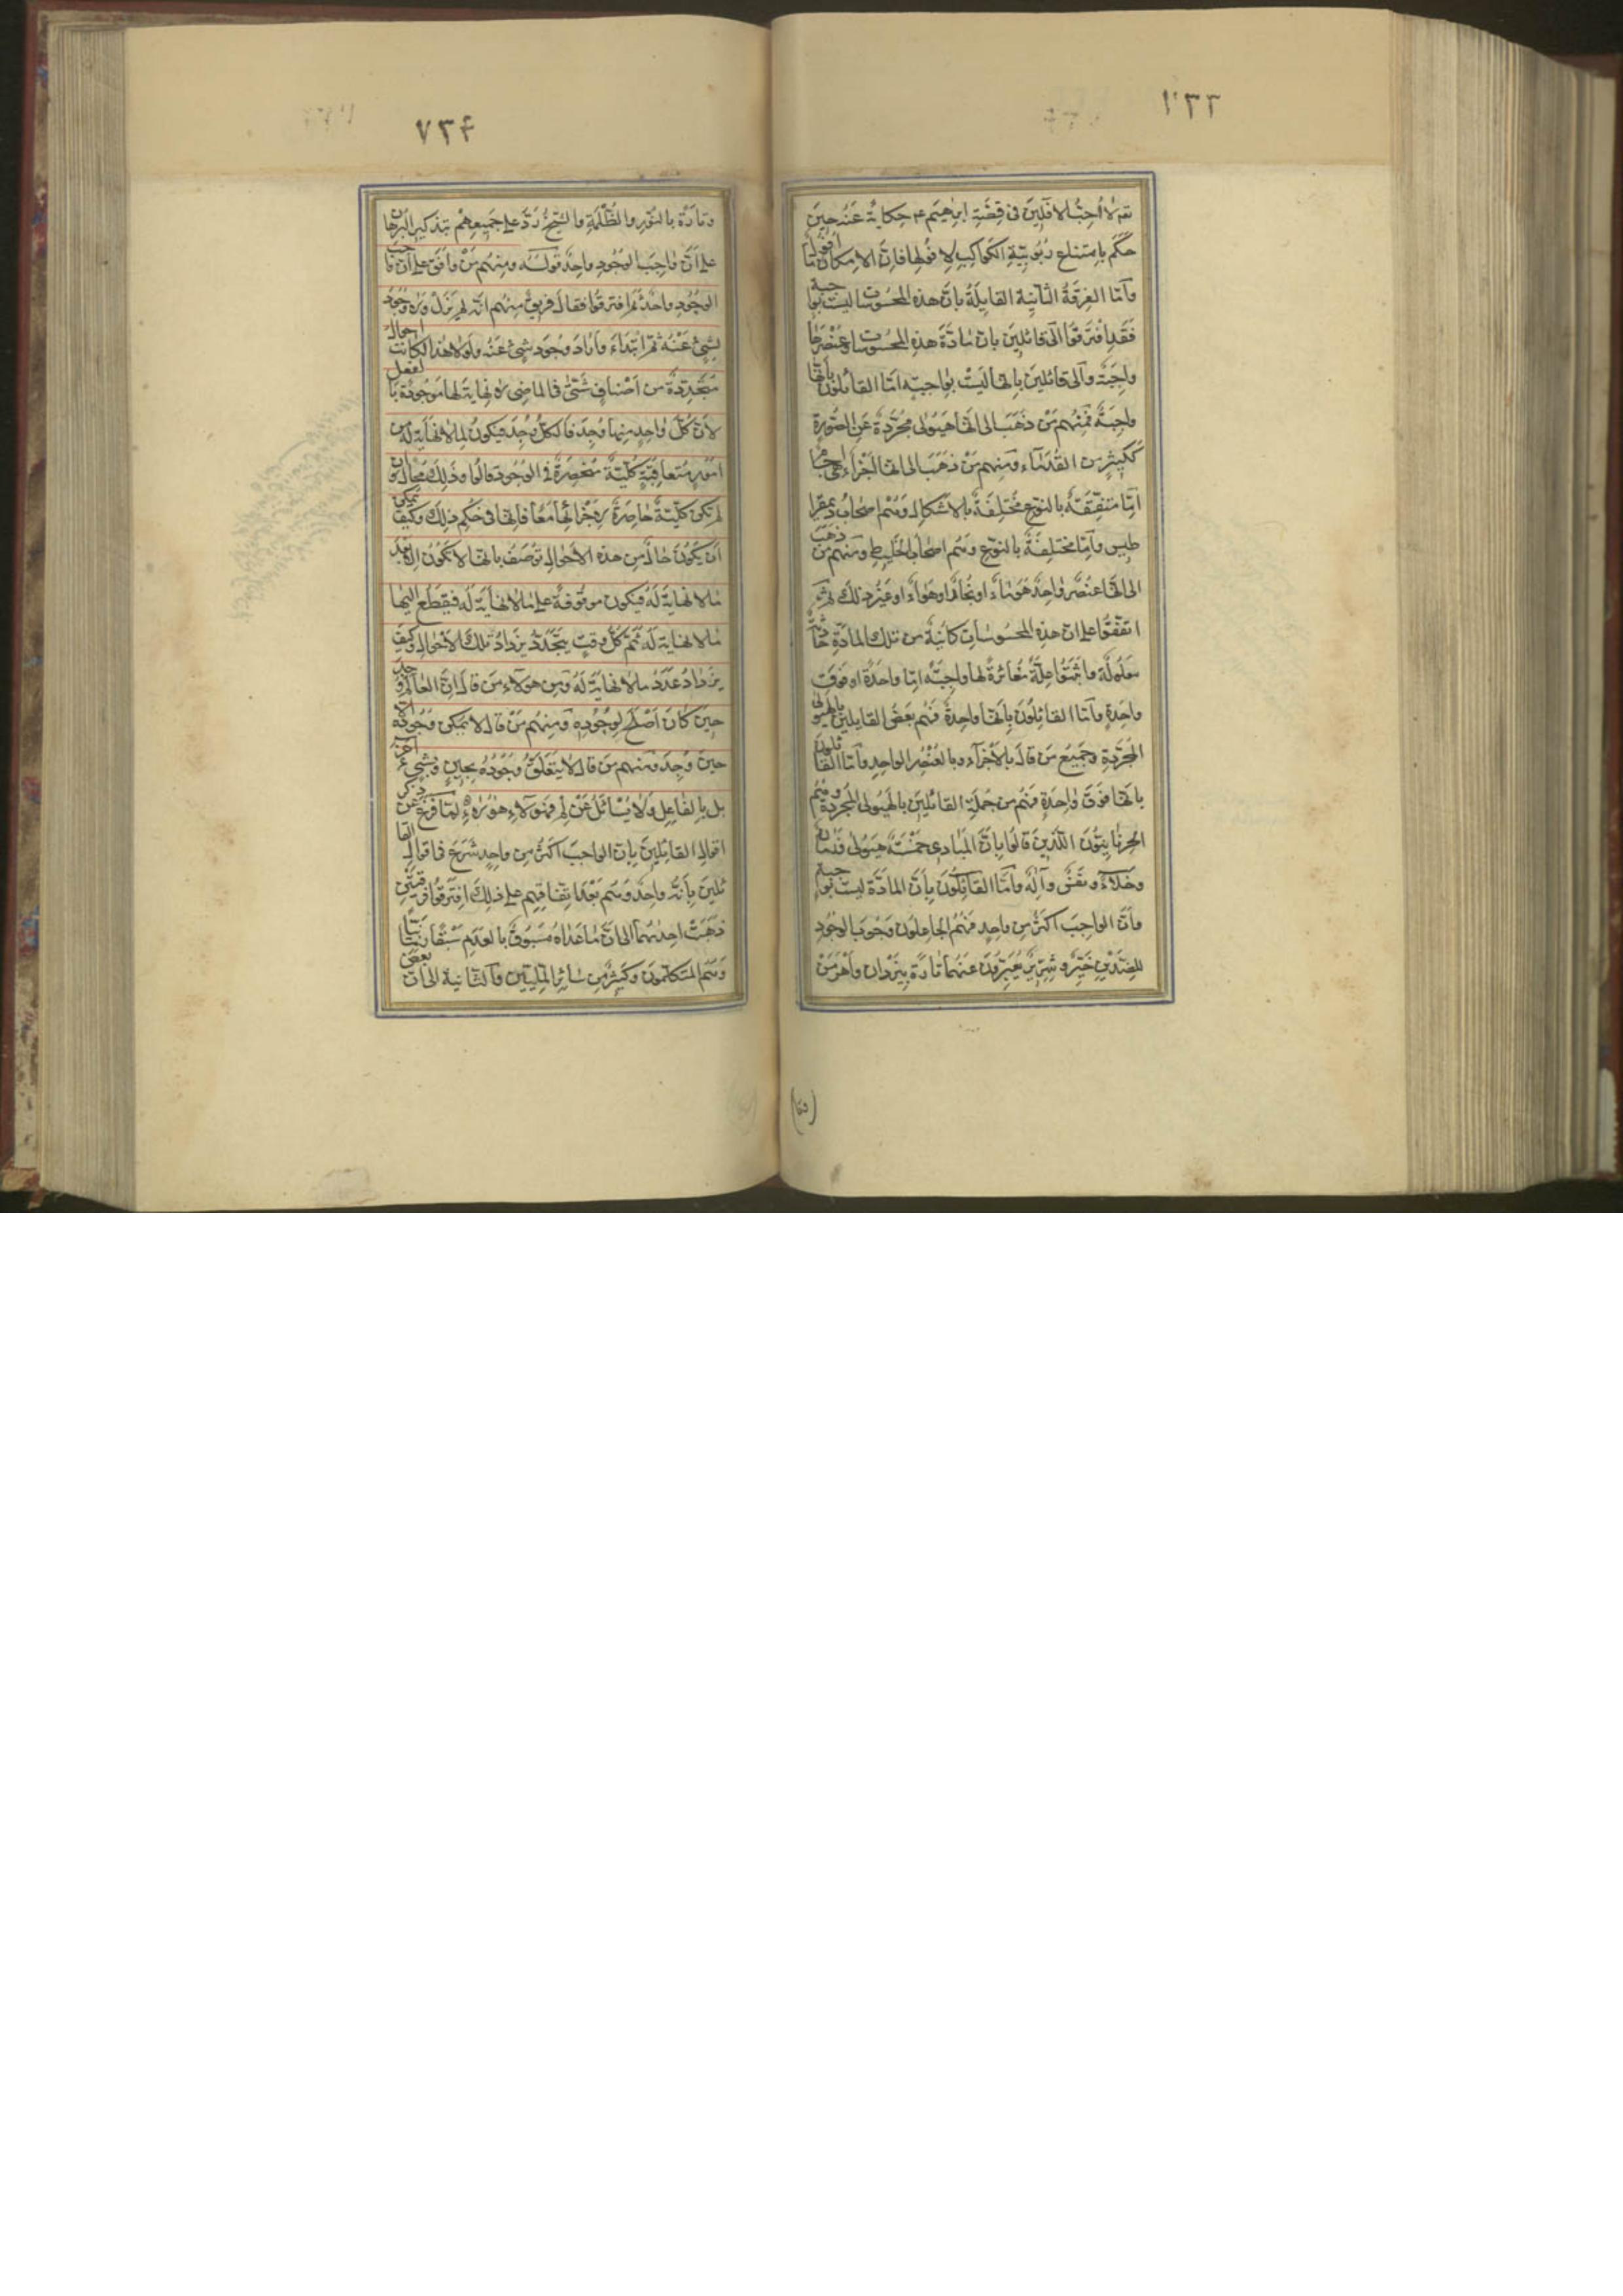 ٧٣٣
تعم لا احب الافلين فى قصة ابرهيم ع حكاية عنه حين
حكم بامتناع ربوبية الكواكب لافولها فان الامكان افول ما
وآما الفرقة الثانية القايلة بان هذه المحسوسات ليست بواجبة
فقد افترقوا الى قائلين بان مادة هذه المحسوسات وعنصرها
واجبة والى قائلين بانها ليست بواجبة اما القائلون بانها
واجبة فمنهم من ذهب الى انها هيولى مجردة عن الصورة
ككثير من القدماء ومنهم من ذهب الى انها اجزاء هى اجسام
اما متفقة بالنوع مختلفة بالاشكال وهم اصحاب ذيمقرا
طيس واما مختلفة بالنوع وهم اصحاب الخليط ومنهم من ذهب
الى انها عنصر واحد هو ماء او بخار او هواء او غير ذلك ثم
اتفقوا على ان هذه المحسوسات كائنة من تلك المادة حادثة
معلولة واثبتوا علة مغائرة لها واجبة اما واحدة او فوق
واحدة واما القائلون بانها واحدة فهم بعض القايلين بالهيولى
المجردة وجميع من قال بالاجزاء وبالعنصر الواحد وامّا القائلون
بانها فوق واحدة فهم من جملة القائلين بالهيولى المجردة وهم
الحرنانيون الذين قالوا بان المبادى خمسة هيولى وزمان
وخلاء ونفس وآله وامّا القائلون بان المادة ليست بواجبة
وان الواجب اكثر من واحد فهم الجاعلون وجوب الوجود
للضدين خير وشرير يعبرون عنهما تارة بيزدان واهرمن
(وتا)
٧٣۴
وتارة بالنور والظلمة والشيخ رد على جميعهم بتذكير البرهان
على ان واجب الوجود واحد قوله ومنهم من وافق على ان واجب
الوجود واحد ثم افترقوا فقال فريق منهم انه لم يزل ولا وجود
لشئ عنه ثم ابتداء واراد وجود شئ عنه ولولا هذا لكانت احوال
متجددة من اصناف شتى فى الماضى لا نهاية لها موجودة بالفعل
لان كل واحد منها وجد فالكل وجد فيكون لما لا نهاية له من
امور متعاقبة كلية منحصرة فى الوجود قالوا وذلك محال وان
لم تكن كلية حاصرة لاجزائها معا فانها فى حكم ذلك وكيف يمكن
ان يكون حال من هذه الاحوال توصف بانها لا تكون الا بعد
ما لا نهاية له فيكون موقوفة على ما لا نهاية له فيقطع اليها
ما لا نهاية له ثم كل وقت يتجدد يزداد تلك الاحوال وكيف
يزداد عدد ما لا نهاية له ومن هولاء من قال ان العالم وجد
حين كان اصلح لوجوده ومنهم من قال لا يمكن وجوده الا
حين وجد ومنهم من قال لا يتعلق وجوده بحين وبشئ آخر
بل بالفاعل ولا يسائل عن لم فهولاء هولاء لما فرغ عن ذكر
اقوال القائلين بان الواجب اكثر من واحد شرع فى اقوال القا
ئلين بانه واحد وهم بعد اتفاقهم على ذلك افترقوا فرقتين
ذهبت احديهما الى ان ما عداه مسبوق بالعدم سبقا زمانيا
وهم المتكلمون وكثير من سائر المليين والثانية الى ان بعض